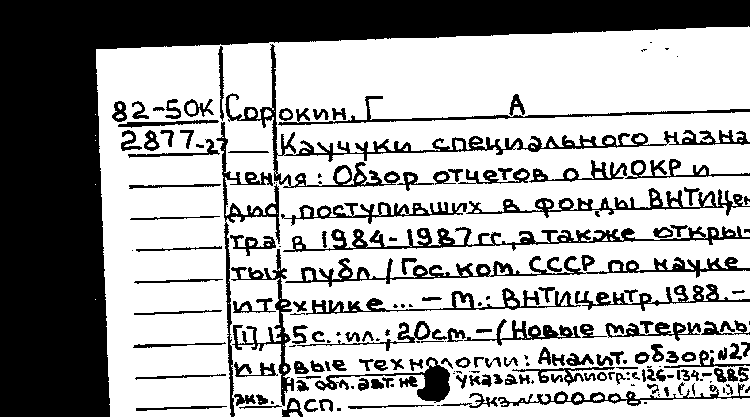 82-50К Сорокин, Г А
2877-27 Каучуки специального назна
чения: Обзор отчетов о НИОКР и
дис., поступивших в фонды ВНТИцен
тра в 1984-1987 гг., а также откры-
тых публ. / Гос. ком. СССР по науке
и технике... - М.: ВНТИцентр, 1988.-
[1], 135 с.: ил.; 20 см. - (Новые материалы
и новые технологии: Аналит. обзор; №27
На обл. авт. не указан. Библиогр.: с 126-134. - 885
экз. ДСП. Экз. № 000002.